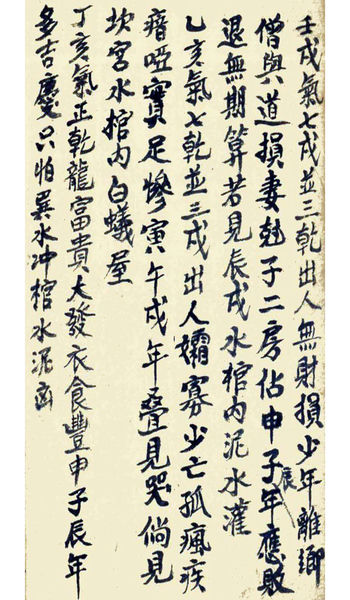 壬戌氣七戌並三乾出人無財損少年離鄉
僧與道損妻尅子二房佔申子辰年應敗
退無期算若見辰戌水棺內泥水灌
乙亥氣七乾並三戌出人孀寡少亡孤瘋疾
瘖啞實足慘寅午戌年疊見哭倘見
坎宮水棺內白蟻屋
丁亥氣正乾龍富貴大發衣食豐申子辰年
多吉慶只怕巽水冲棺水泥凶